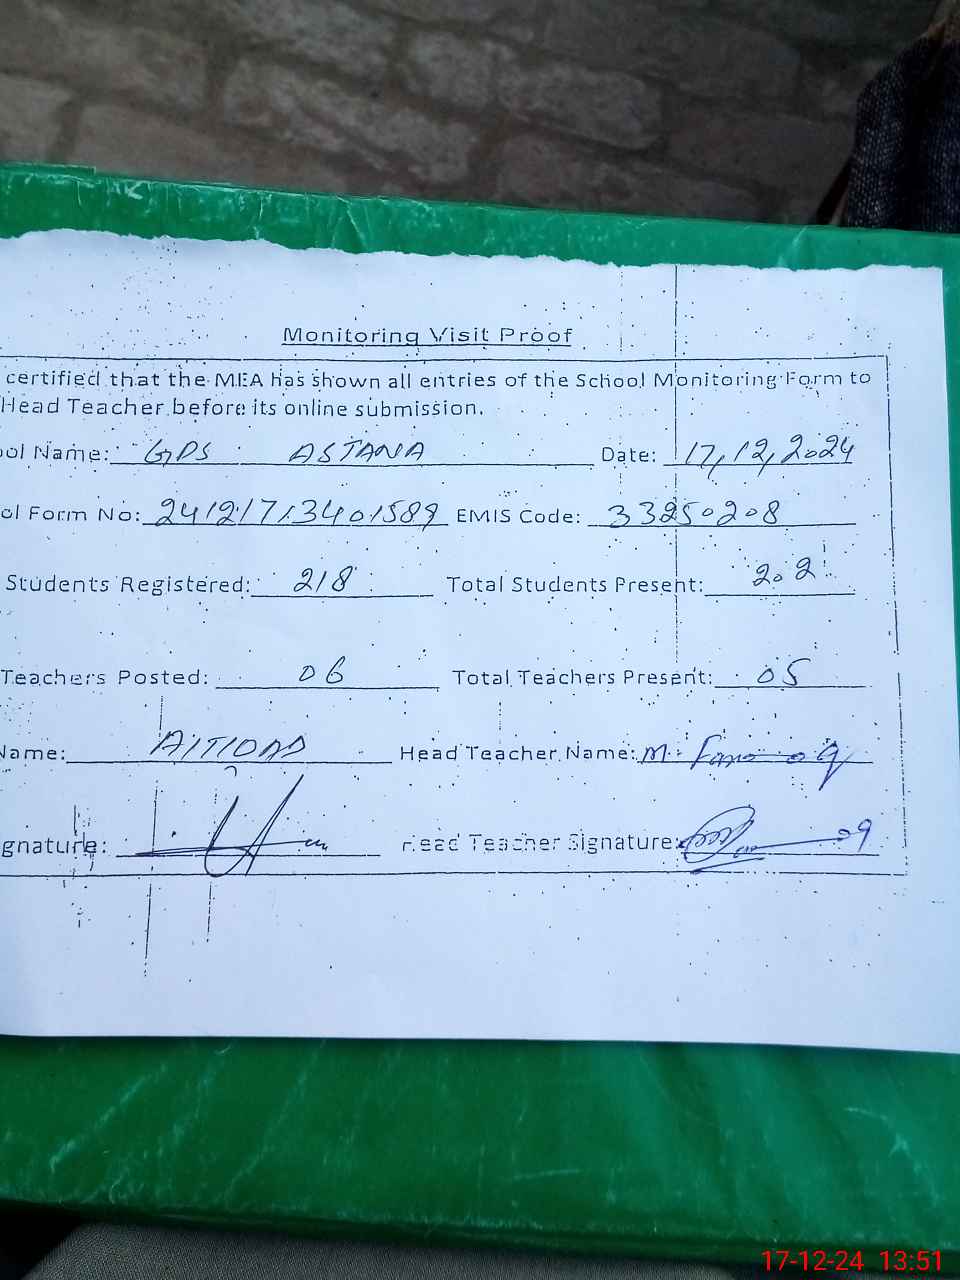 Monitoring Visit Proof
certified that the MEA has shown all entries of the School Monitoring Form to
Head Teacher before its online submission.
ool Name: GPS ASTANA Date: 17,12,2024
ol Form No: 24121713401589 EMIS Code: 33250208
Students Registered: 218 Total Students Present: 202
Teachers Posted: 06 Total Teachers Present: 05
Name: Head Teacher Name: M. Farooq
gnature: Head Teacher Signature:
17-12-24 13:51